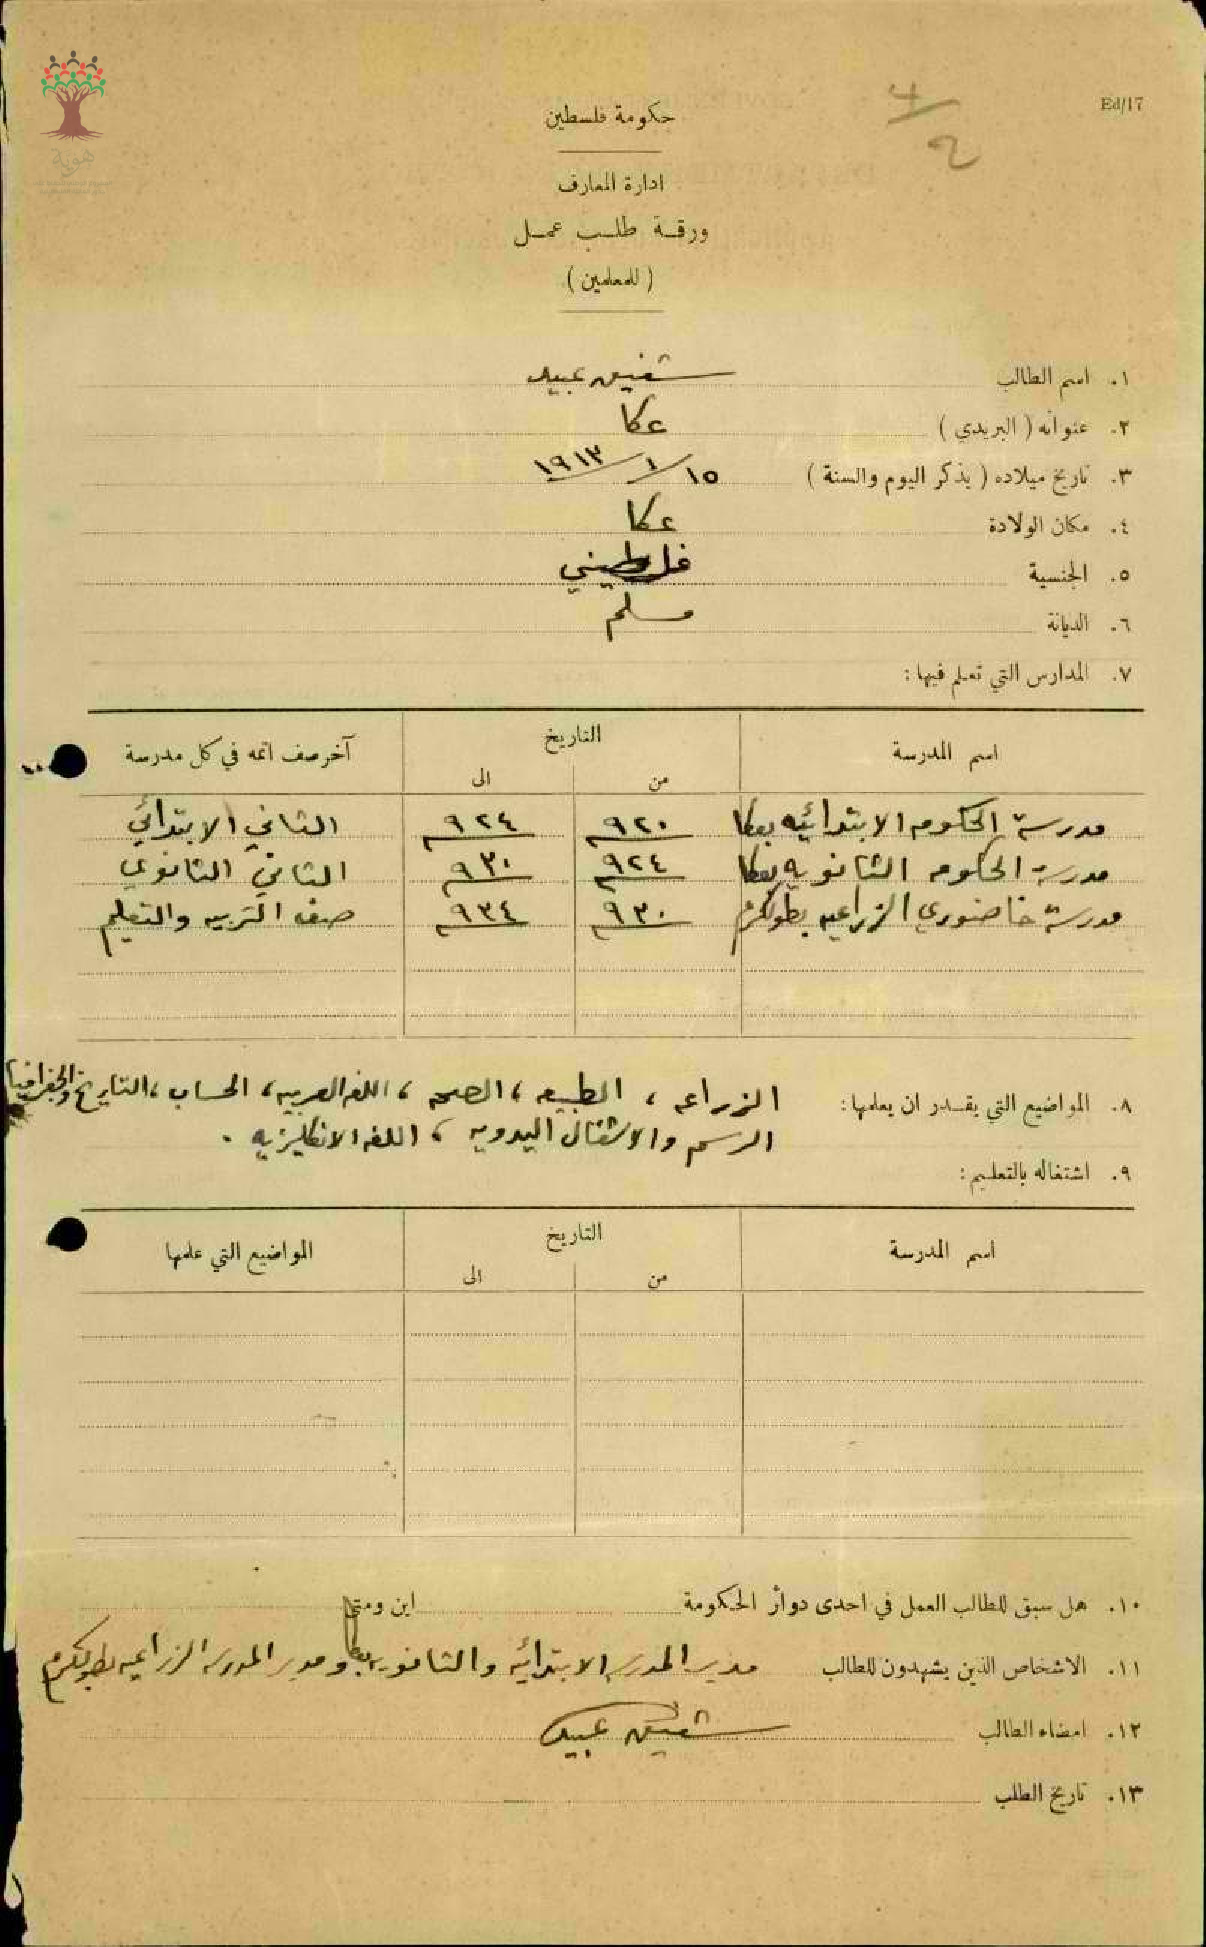 Ed/17
٤/٢
حكومة فلسطين
ادارة المعارف
ورقة طلب عمل
( للمعلمين )
١. اسم الطالب شفيق عبيد
٢. عنوانه ( البريدي ) عكا
٣. تاريخ ميلاده ( يذكر اليوم والسنة ) ١٥/١/١٩١٣
٤. مكان الولادة عكا
٥. الجنسية فلسطيني
٦. الديانة مسلم
٧. المدارس التي تعلم فيها :
اسم المدرسة التاريخ آخر صف اتمه في كل مدرسة
من الى
مدرسة الحكومه الابتدائيه بعكا ٩٢٠ ٩٢٤ الثاني الابتدائي
مدرسة الحكومه الثانويه بعكا ٩٢٤ ٩٣٠ الثاني الثانوي
مدرسة خاضوري الزراعيه بطولكرم ٩٣٠ ٩٣٤ صف التربيه والتعليم
٨. المواضيع التي يقدر ان يعلمها : الزراعه ، الطبيعه ، الصحه ، اللغه العربيه ، الحساب ، التاريخ والجغرافيا
الرسم والاشغال اليدويه ، اللغه الانكليزيه .
٩. اشتغاله بالتعليم :
اسم المدرسة التاريخ المواضيع التي علمها
من الى
١٠. هل سبق للطالب العمل في احدى دوائر الحكومة اين ومتى
١١. الاشخاص الذين يشهدون للطالب مدير المدرسه الابتدائيه والثانويه بعكا ومدير المدرسه الزراعيه بطولكرم
١٢. امضاء الطالب شفيق عبيد
١٣. تاريخ الطلب
هوية